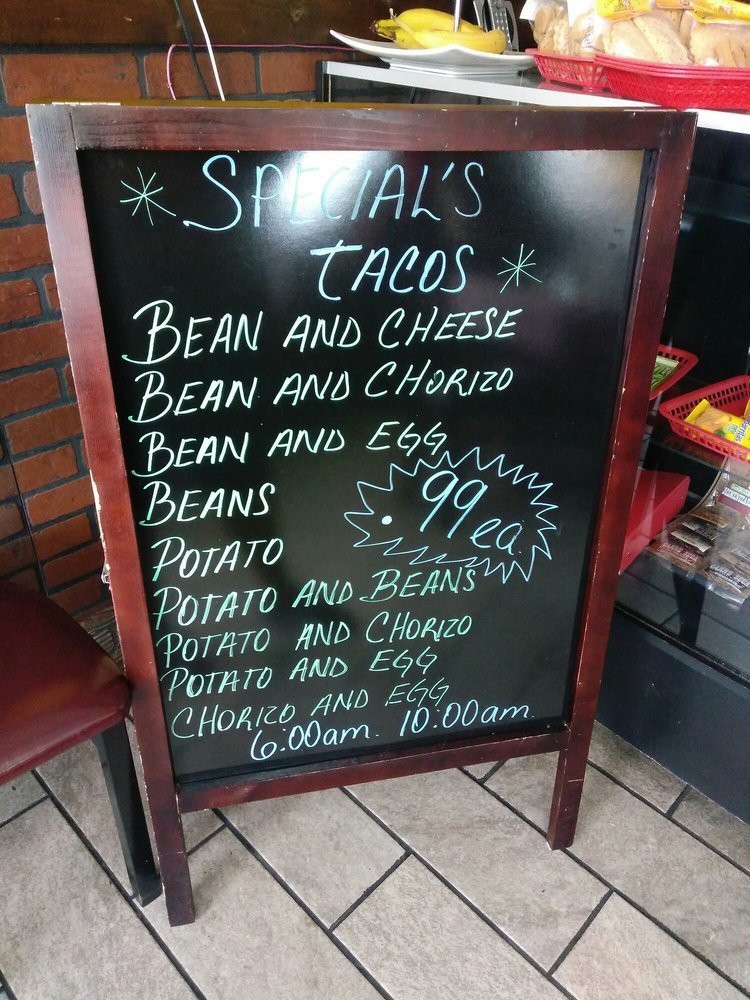 SPECIAL'S
TACOS
BEAN AND CHEESE
BEAN AND CHORIZO
BEAN AND EGG
BEANS
.99 ea.
POTATO
POTATO AND BEANS
POTATO AND CHORIZO
POTATO AND EGG
CHORIZO AND EGG
6:00am. 10:00am.